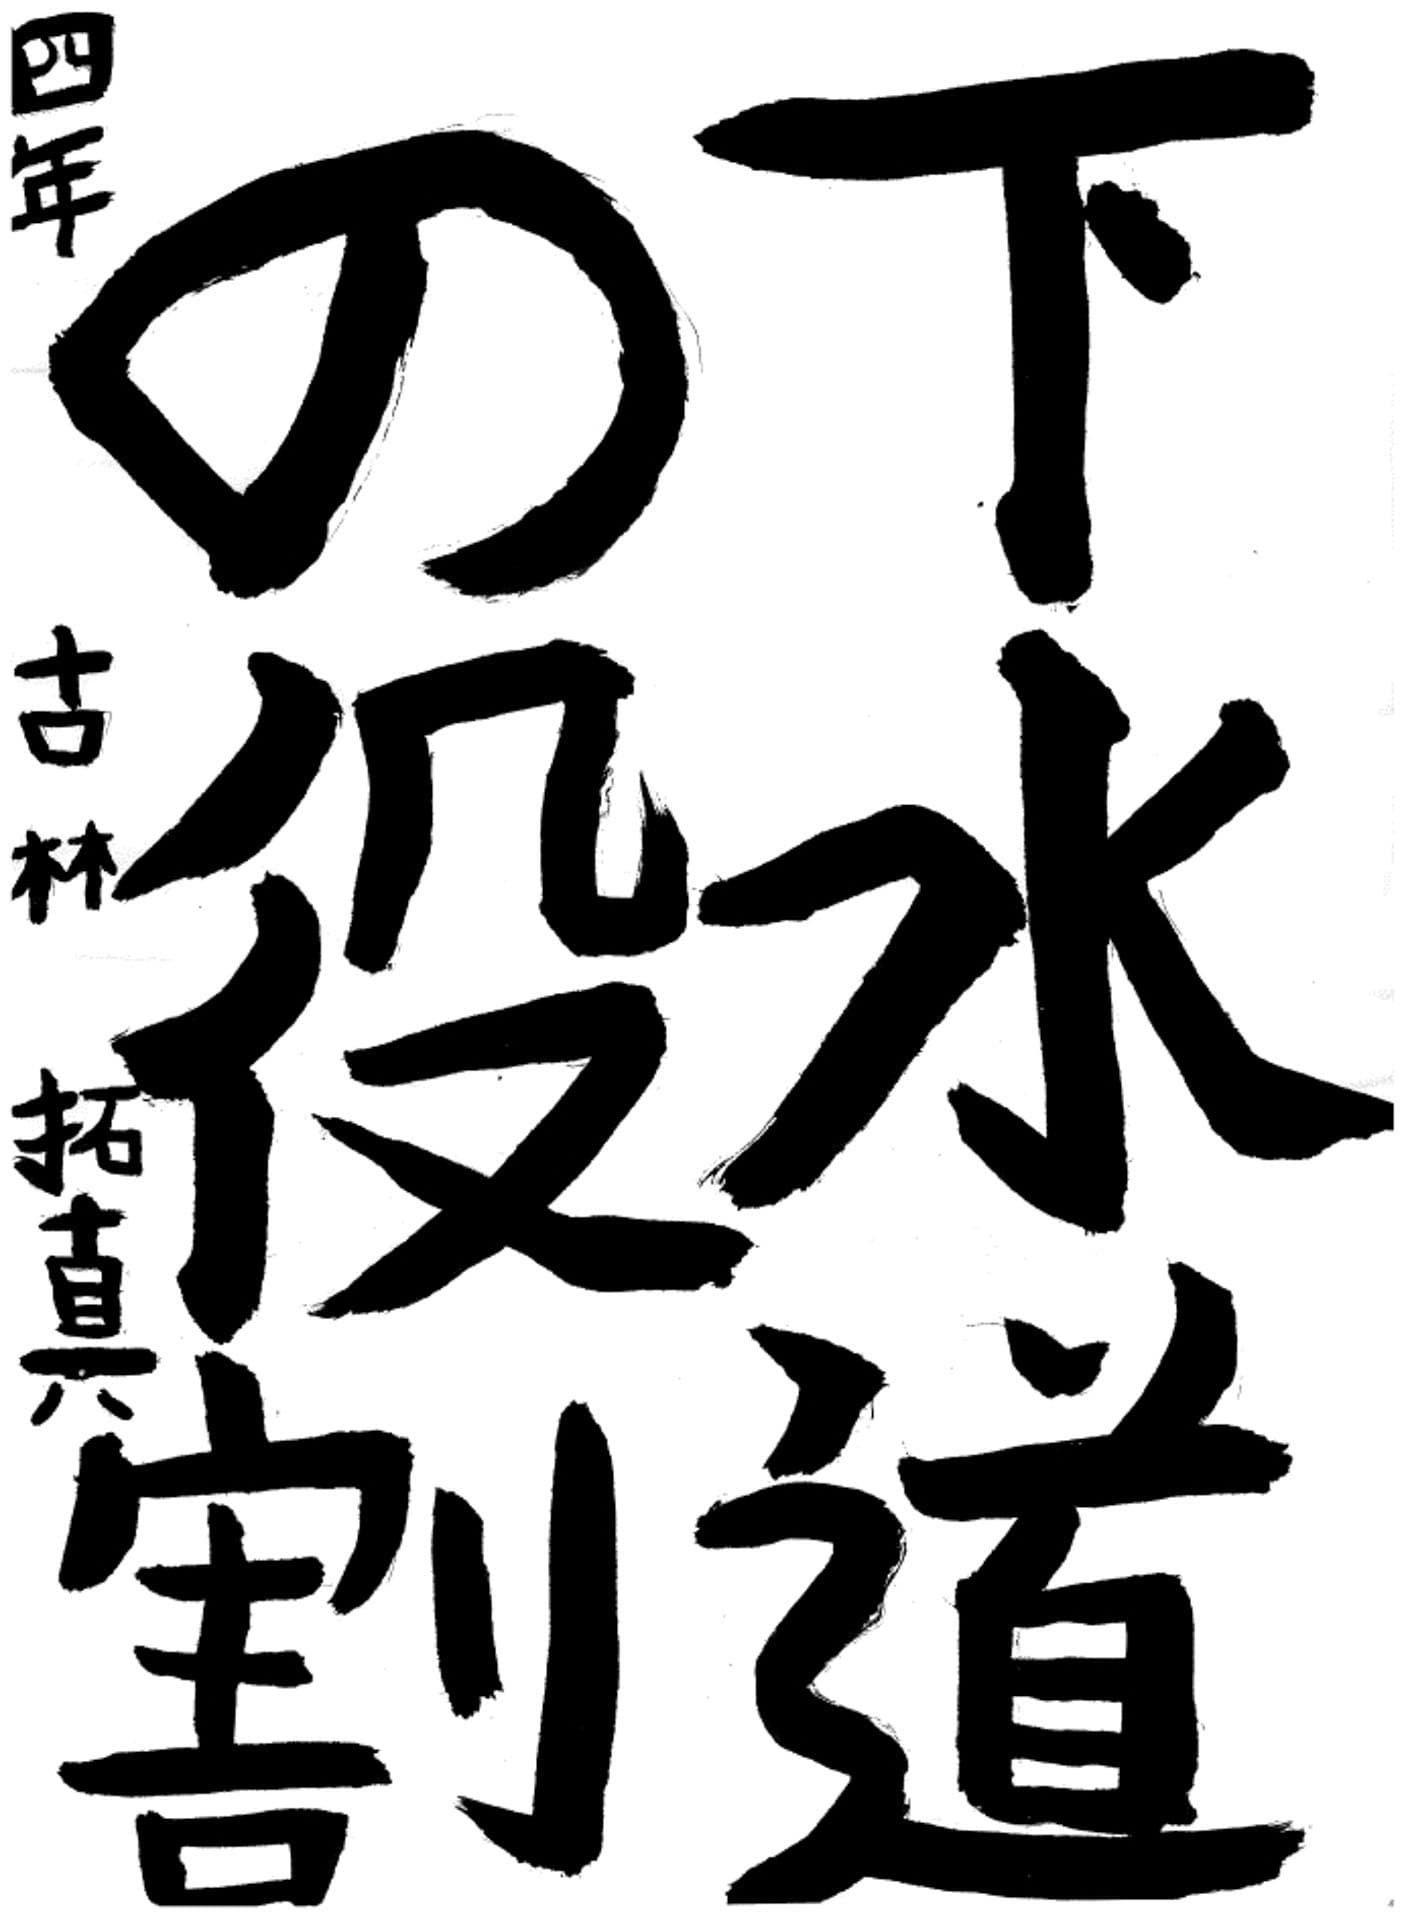 下水道
の役割
四年 古林 拓真